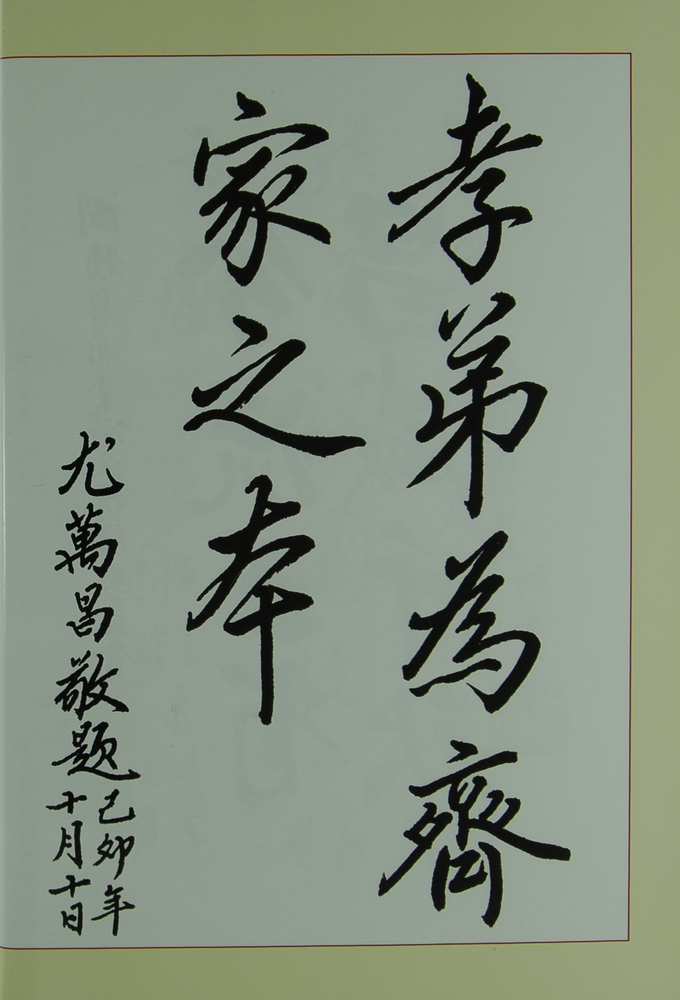 孝弟為齊
家之本
尤萬昌敬題
己卯年
十月十日